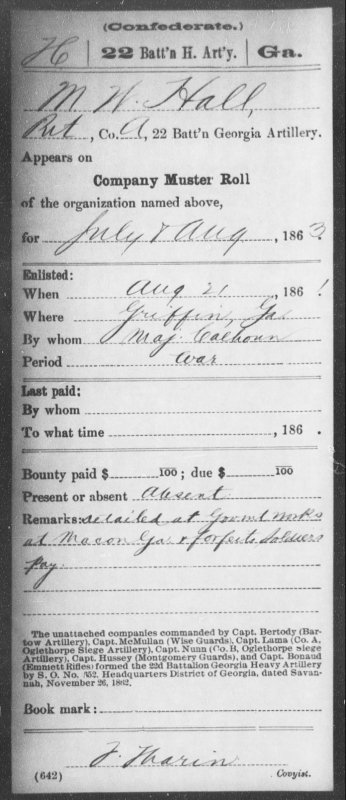 (Confederate.)
H | 22 Batt'n H. Art'y. | Ga.
M. W. Hall,
Pvt, Co. A, 22 Batt'n Georgia Artillery.
Appears on
Company Muster Roll
of the organization named above,
for July & Aug, 1863.
Enlisted:
When Aug 21, 1861.
Where Griffin, Ga.
By whom Maj. Calhoun
Period War
Last paid:
By whom
To what time , 186 .
Bounty paid $ 100; due $ 100
Present or absent Absent
Remarks: detailed at Govmt works
at Macon Ga. & forfeits Soldiers
Pay.
The unattached companies commanded by Capt. Bertody (Bar-
tow Artillery), Capt. McMullan (Wise Guards), Capt. Lama (Co. A,
Oglethorpe Siege Artillery), Capt. Nunn (Co. B, Oglethorpe Siege
Artillery), Capt. Hussey (Montgomery Guards), and Capt. Bonaud
(Emmett Rifles) formed the 22d Battalion Georgia Heavy Artillery
by S. O. No. 352, Headquarters District of Georgia, dated Savan-
nah, November 26, 1862.
Book mark:
(642) Copyist.